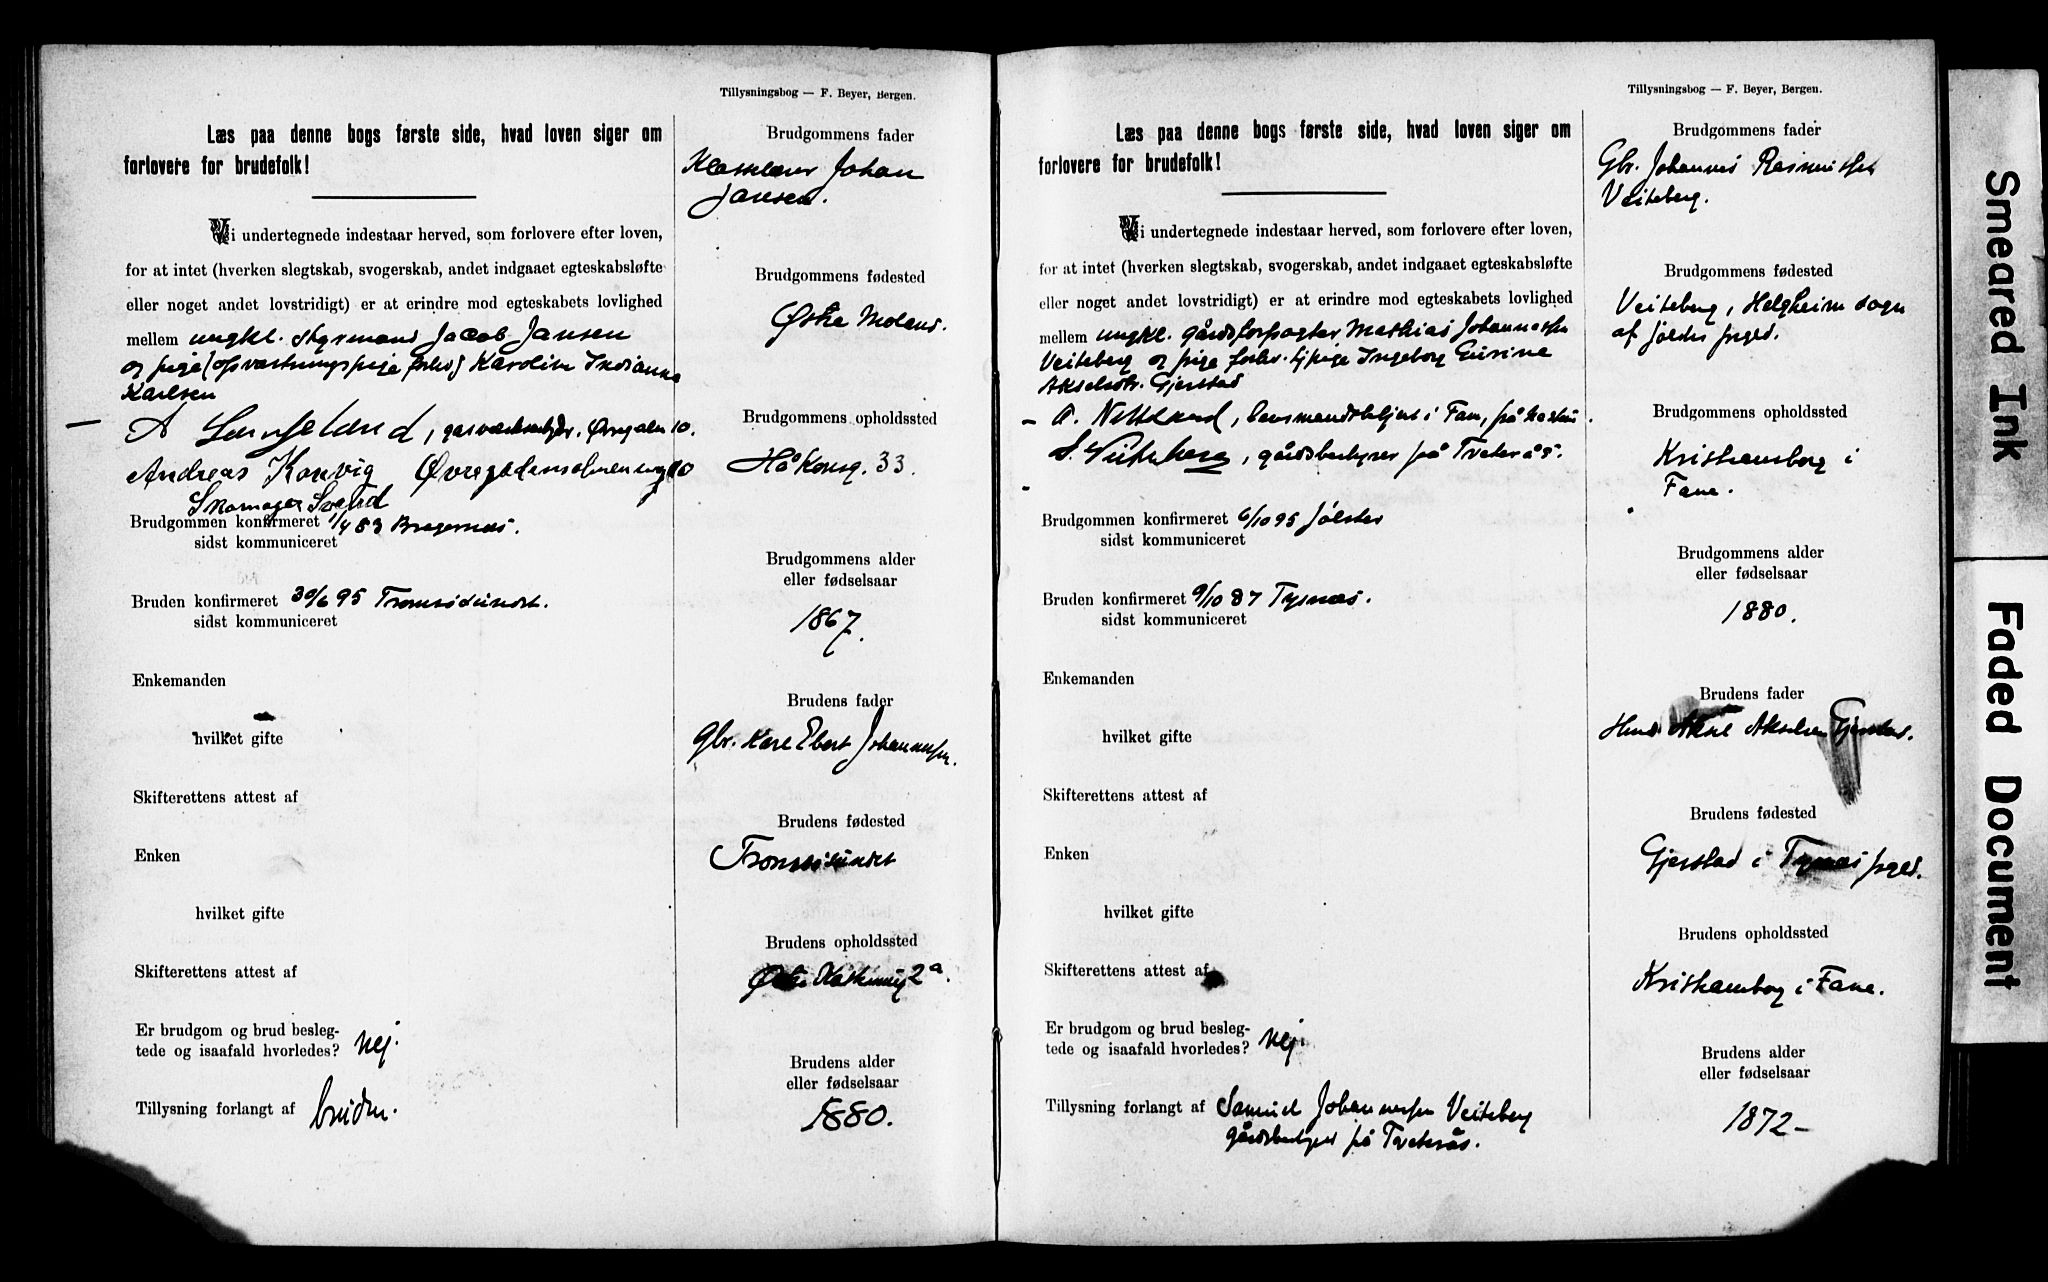 Tillysningsbog — F. Beyer, Bergen.
Læs paa denne bogs første side, hvad loven siger om
forlovere for brudefolk!
Vi undertegnede indestaar herved, som forlovere efter loven,
for at intet (hverken slegtskab, svogerskab, andet indgaaet egteskabsløfte
eller noget andet lovstridigt) er at erindre mod egteskabets lovlighed
mellem ungkl. styrmand Jacob Jansen
og pige (opvartningspige forlov) Karoline Indianna
Karlsen
A
Andreas Konvig Øvregadensalmenning 10
Skomager Svend
Brudgommen konfirmeret 1/4 83 Bragernæs.
sidst kommuniceret
Bruden konfirmeret 30/6 95 Tromsøsundet.
sidst kommuniceret
Enkemanden
hvilket gifte
Skifterettens attest af
Enken
hvilket gifte
Skifterettens attest af
Er brudgom og brud besleg-
tede og isaafald hvorledes? Nej.
Tillysning forlangt af bruden.
Brudgommens fader
Johan
Jansen.
Brudgommens fødested
Brudgommens opholdssted
Håkonsg. 33.
Brudgommens alder
eller fødselsaar
1867.
Brudens fader
Gbr. Karl Ebert Johannessen.
Brudens fødested
Tromsøsundet
Brudens opholdssted
2a.
Brudens alder
eller fødselsaar
1880.
Tillysningsbog — F. Beyer, Bergen.
Læs paa denne bogs første side, hvad loven siger om
forlovere for brudefolk!
Vi undertegnede indestaar herved, som forlovere efter loven,
for at intet (hverken slegtskab, svogerskab, andet indgaaet egteskabsløfte
eller noget andet lovstridigt) er at erindre mod egteskabets lovlighed
mellem ungkl. gårdsforpagter Mathias Johannessen
Veiteberg og pige forhv. tj.pige Ingeborg Gurine
Akselsdtr. Gjerstad
lensmandsbetjent i Fane, på Nestun.
S. Veiteberg, gårdsbestyrer på Tveterås.
Brudgommen konfirmeret 6/10 95 Jølster
sidst kommuniceret
Bruden konfirmeret 9/10 87 Tysnæs.
sidst kommuniceret
Enkemanden
hvilket gifte
Skifterettens attest af
Enken
hvilket gifte
Skifterettens attest af
Er brudgom og brud besleg-
tede og isaafald hvorledes? Nej.
Tillysning forlangt af Samuel Johannessen Veiteberg
gårdsbestyrer på Tveterås.
Brudgommens fader
Gbr. Johannes Rasmussen
Veiteberg.
Brudgommens fødested
Veiteberg, Helgheim sogn
af Jølster prgld.
Brudgommens opholdssted
Kristianborg i
Fane.
Brudgommens alder
eller fødselsaar
1880.
Brudens fader
Husm. Aksel Akselsen Gjerstad.
Brudens fødested
Gjerstad i Tysnæs prgld.
Brudens opholdssted
Kristianborg i Fane.
Brudens alder
eller fødselsaar
1872 –
Smeared Ink
Faded Document